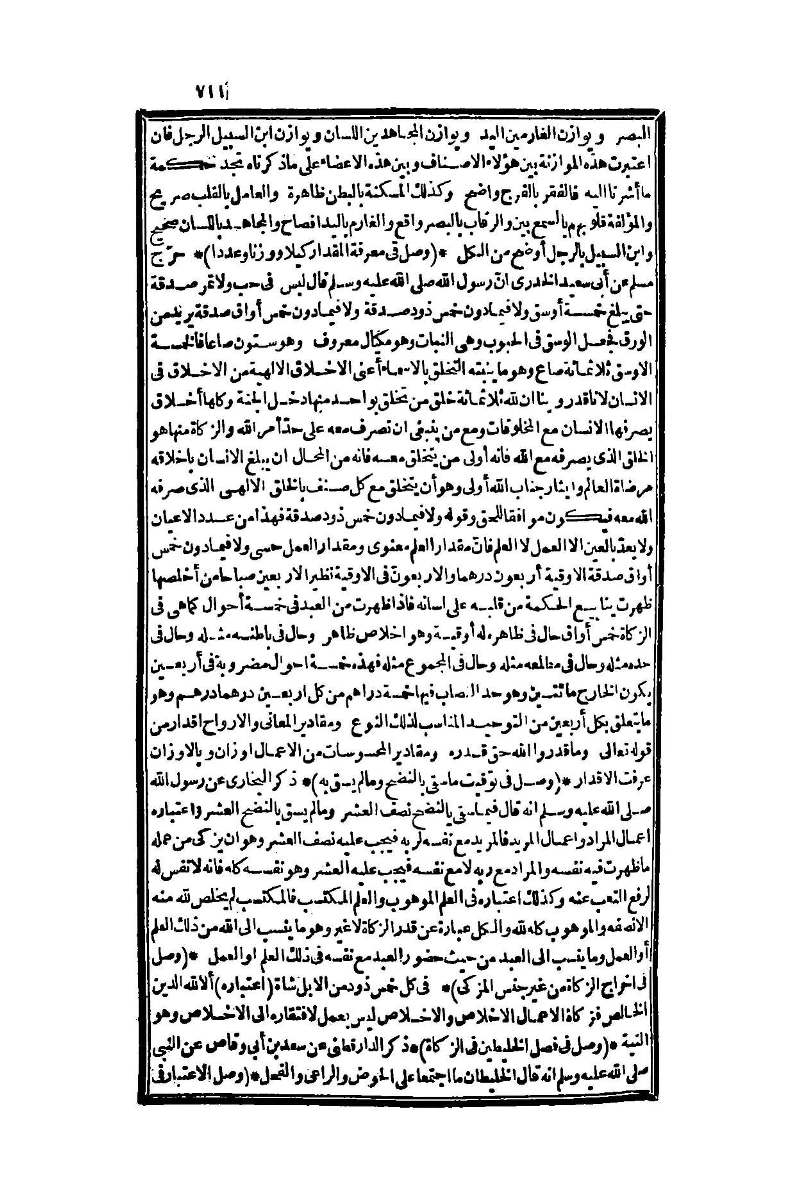 ٧١١
البصر ويوازن الغارمين اليد ويوازن المجاهدين اللسان ويوازن ابن السبيل الرجل فان
اعتبرت هذه الموازنة بين هؤلاء الاصناف وبين هذه الاعضاء على ما ذكرناه تجد حكمة
ما أشرنا اليه فالفقر بالفرج واضح وكذلك المسكنة بالبطن ظاهرة والعامل بالقلب صريح
والمؤلفة قلوبهم بالسمع بين والرقاب بالبصر واقع والغارم باليد افصاح والمجاهد باللسان صحيح
وابن السبيل بالرجل أوضح من الكل *(وصل فى معرفة المقدار كيلا ووزنا وعددا)* خرّج
مسلم عن أبى سعيد الخدرى انّ رسول الله صلى الله عليه وسلم قال ليس فى حب ولا تمر صدقة
حتى يبلغ خمسة أوسق ولا فيما دون خمس ذود صدقة ولا فيما دون خمس أواق صدقة يريد من
الورق فجعل الوسق فى الحبوب وهى النبات وهو مكيال معروف وهو ستون صاعا فالخمسة
الاوسق ثلاثمائة صاع وهو ما ينبته التخلق بالاسماء أعنى الاخلاق الالهية من الاخلاق فى
الانسان لانا قد روينا ان لله ثلاثمائة خلق من تخلق بواحد منها دخل الجنة وكلها أخلاق
يصرفها الانسان مع المخلوقات ومع من ينبغى ان تصرف معه على حدّ أمر الله والزكاة منها هو
الخلق الذى يصرفه مع الله فانه أولى من يتخلق معه فانه من المحال ان يبلغ الانسان باخلاقه
مرضاة العالم وايثار جناب الله أولى وهو أن يتخلق مع كل صنف بالخلق الالهى الذى صرفه
الله معه فيكون موافقا للحق وقوله ولا فيما دون خمس ذود صدقة فهذا من عدد الاعيان
ولا يعدّ بالعين الا العمل لا العلم فانّ مقدار العلم معنوى ومقدار العمل حسى ولا فيما دون خمس
أواق صدقة الاوقية أربعون درهما والاربعون فى الاوقية نظير الاربعين صباحا من أخلصها
ظهرت ينابيع الحكمة من قلبه على لسانه فاذا ظهرت من العبد فى خمسة أحوال كما هى فى
الزكاة خمس أواق حال فى ظاهره له أوقية وهو اخلاص ظاهر وحال فى باطنه مثله وحال فى
حده مثله وحال فى مطلعه مثله وحال فى المجموع مثله فهذه خمسة احوال مضروبة فى أربعين
يكون الخارج مائتين وهو حد النصاب فيها خمسة دراهم من كل اربعين درهما درهم وهو
ما يتعلق بكل أربعين من التوحيد المناسب لذلك النوع ومقادير المعانى والارواح اقدار من
قوله تعالى وما قدروا الله حق قدره ومقادير المحسوسات من الاعمال اوزان وبالاوزان
عرفت الاقدار *(وصل فى توقيت ما سقى بالنضح وما لم يسق به)* ذكر البخارى عن رسول الله
صلى الله عليه وسلم انه قال فيما سقى بالنضح نصف العشر وما لم يسق بالنضح العشر (واعتباره
اعمال المراد واعمال المريد فالمريد مع نفسه لربه فيجب عليه نصف العشر وهو ان يزكى من عمله
ما ظهرت فيه نفسه والمراد مع ربه لا مع نفسه فيجب عليه العشر وهو نفسه كله فانه لا نفس له
لرفع التعب عنه وكذلك اعتباره فى العلم الموهوب والعلم المكتسب فالمكتسب لم يخلص لله منه
الا نصفه والموهوب كله لله والكل عبارة عن قدر الزكاة لا غير وهو ما ينسب الى الله من ذلك العلم
أو العمل وما ينسب الى العبد من حيث حضور العبد مع نفسه فى ذلك العلم او العمل *(وصل
فى اخراج الزكاة من غير جنس المزكى)* فى كل خمس ذود من الابل شاة (اعتباره) ألا لله الدين
الخالص فزكاة الاعمال الاخلاص والاخلاص ليس بعمل لافتقاره الى الاخلاص وهو
النية *(وصل فى فصل الخليطين فى الزكاة)* ذكر الدارقطنى عن سعد بن أبى وقاص عن النبى
صلى الله عليه وسلم انه قال الخليطان ما اجتمعا على الحوض والراعى والفحل *(وصل الاعتبار فى